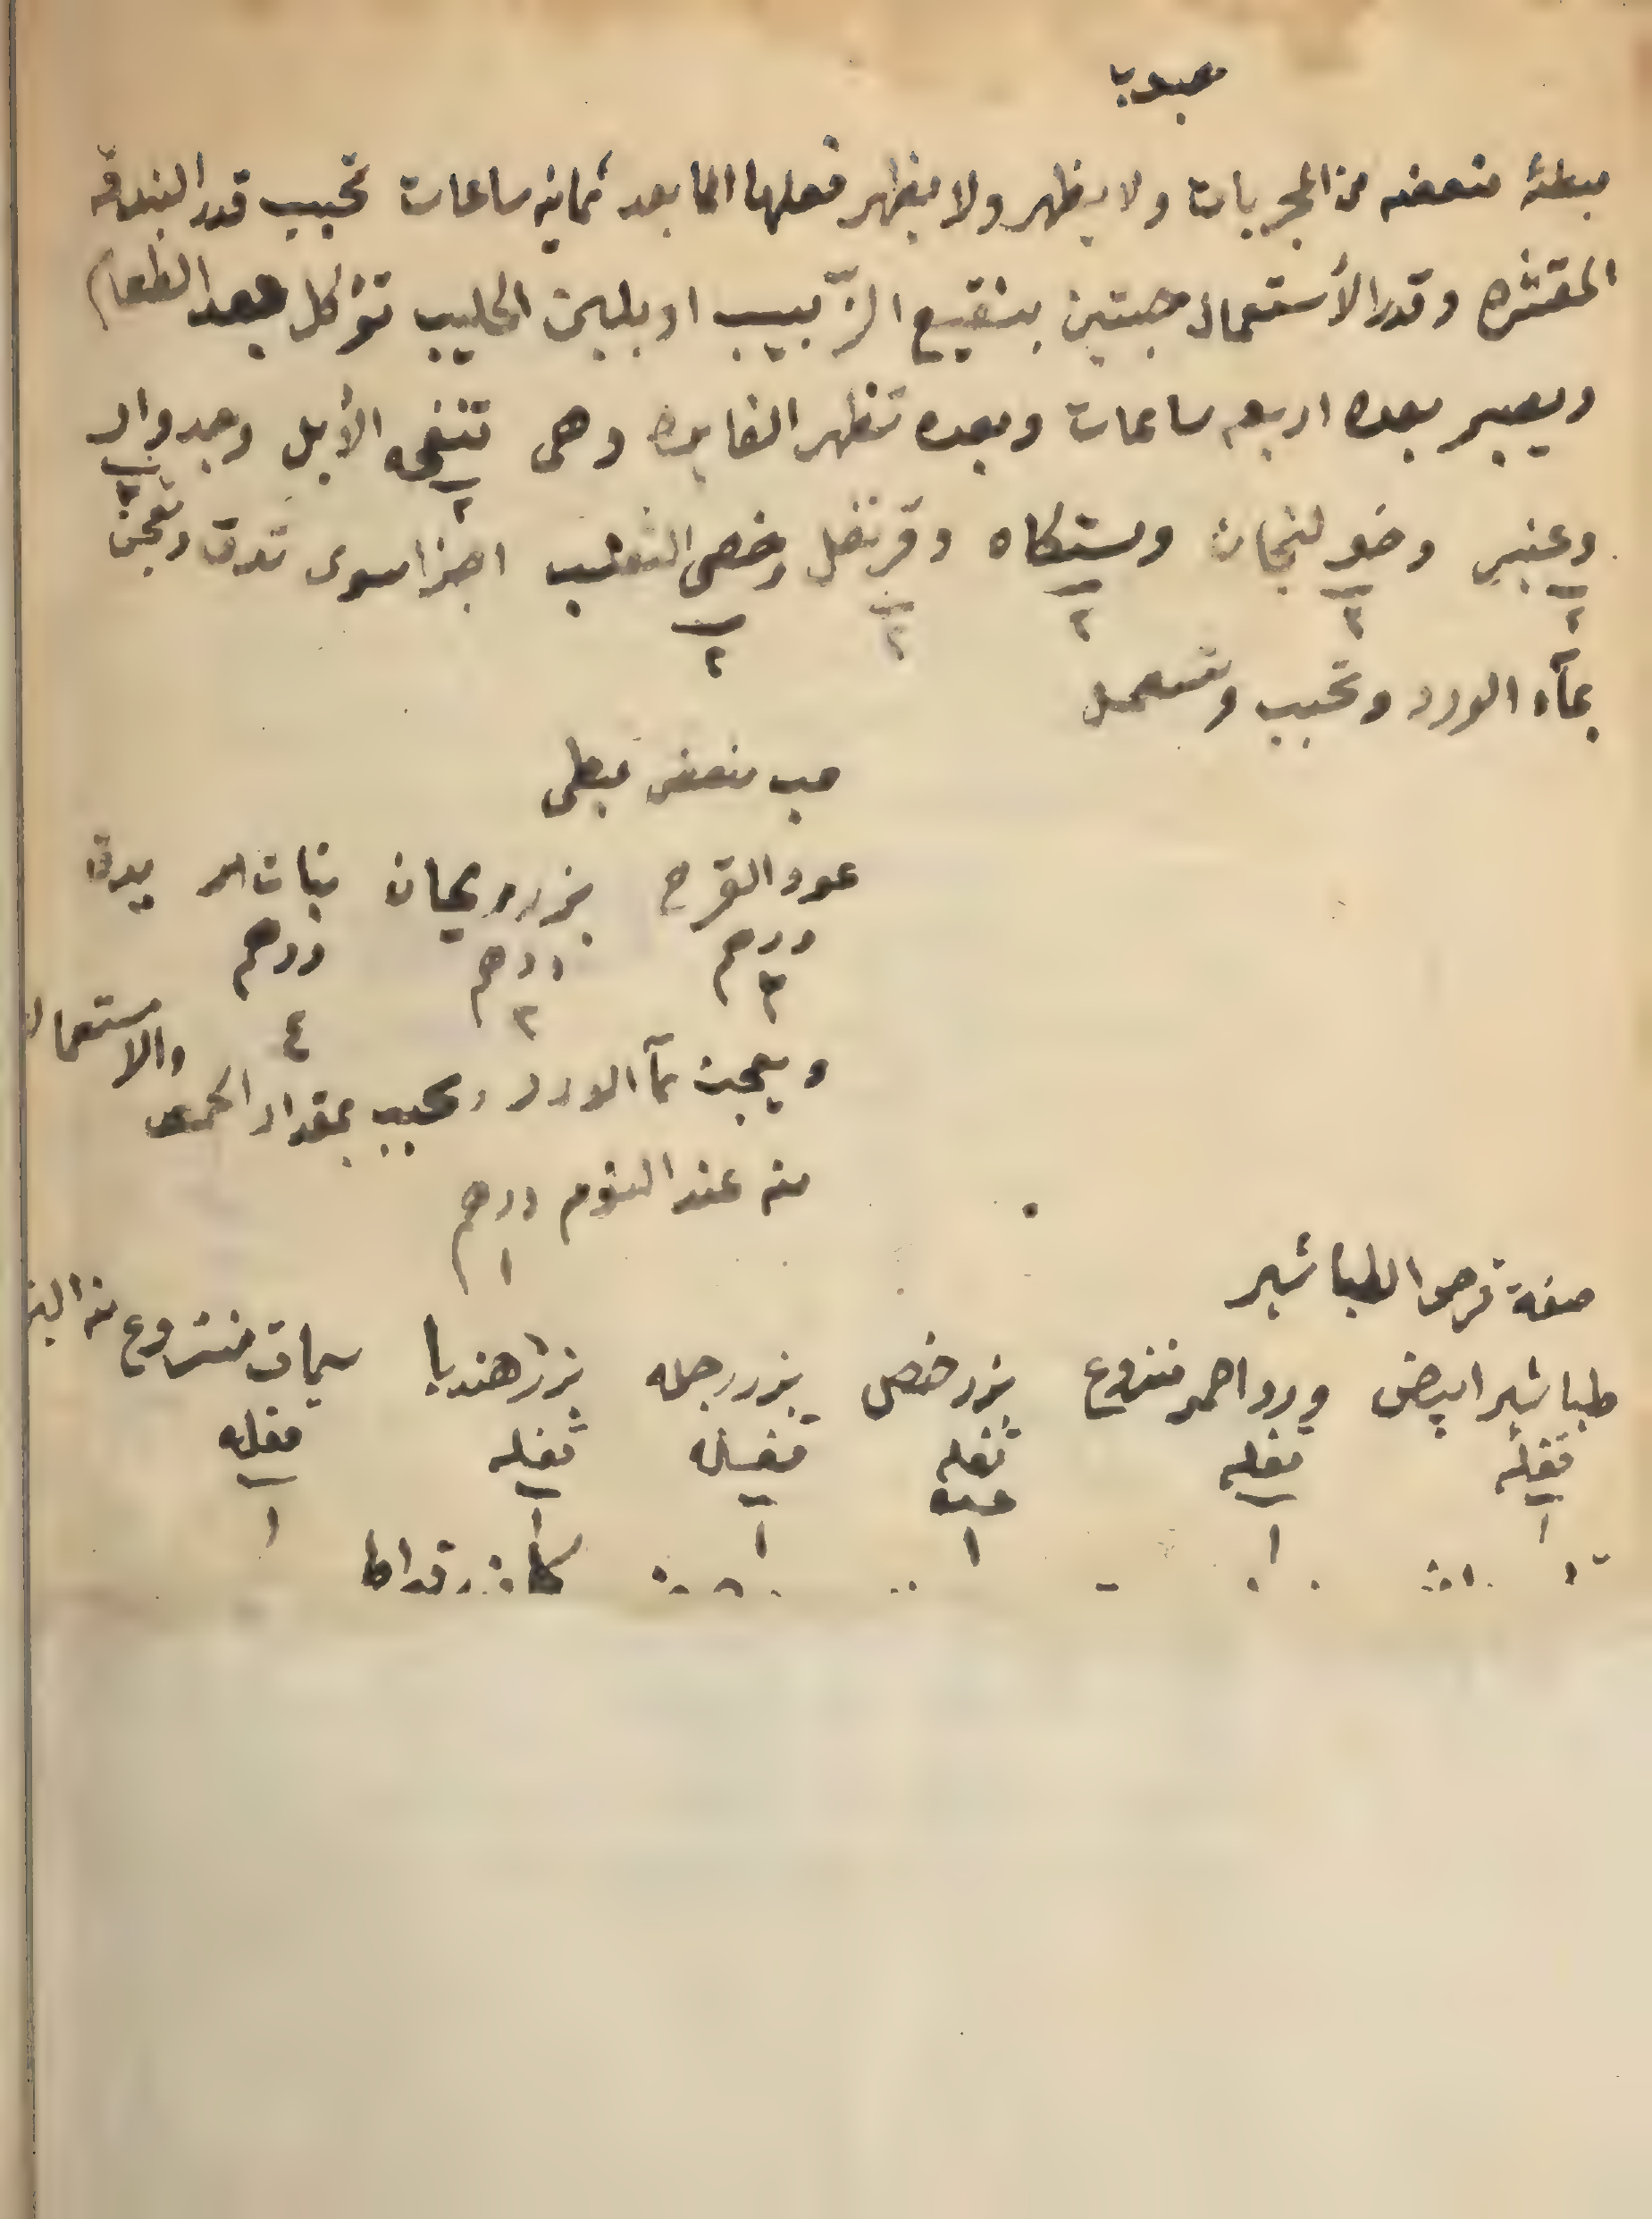 حبوب
مبطئه منعضه من المجربات ولا يظهر ولا يظهر فعلها الا بعد ثمانية ساعات تحبب قدر البندقه
المقشره وقدر الأستعمال حبتين بنقيع الزّبيب او بلبن الحليب تؤكل بعد الطعام
ويصبر بعده اربع ساعات وبعده تظهر الفايده وهى تنفحه الأبل وجدوار
٢ ٢
وعنبر وخولنجان ومستكاه وقرنفل وخصى الثعلب اجزا سوى تدق وتعجن
٢ ٢ ٢ ٢ ٢
بمآء الورد وتحبب وتستعمل
حب منعض مبطى
عود القرح بزر ريحان نبات يدق
درهم درهم درهم
٣ ٣ ٤
ويعجن بمآ الورد ويحبب بمقدار الحمص والاستعمال
منه عند النوم درهم
١
صفة قرص الطباشير
طباشير ابيض ورد احمر منزوع بزر خص بزر رجله بزر هندبا سماق منزوع من
مثقله مثقله مثقله مثقله مثقله
١ ١ ١ ١ ١ ١